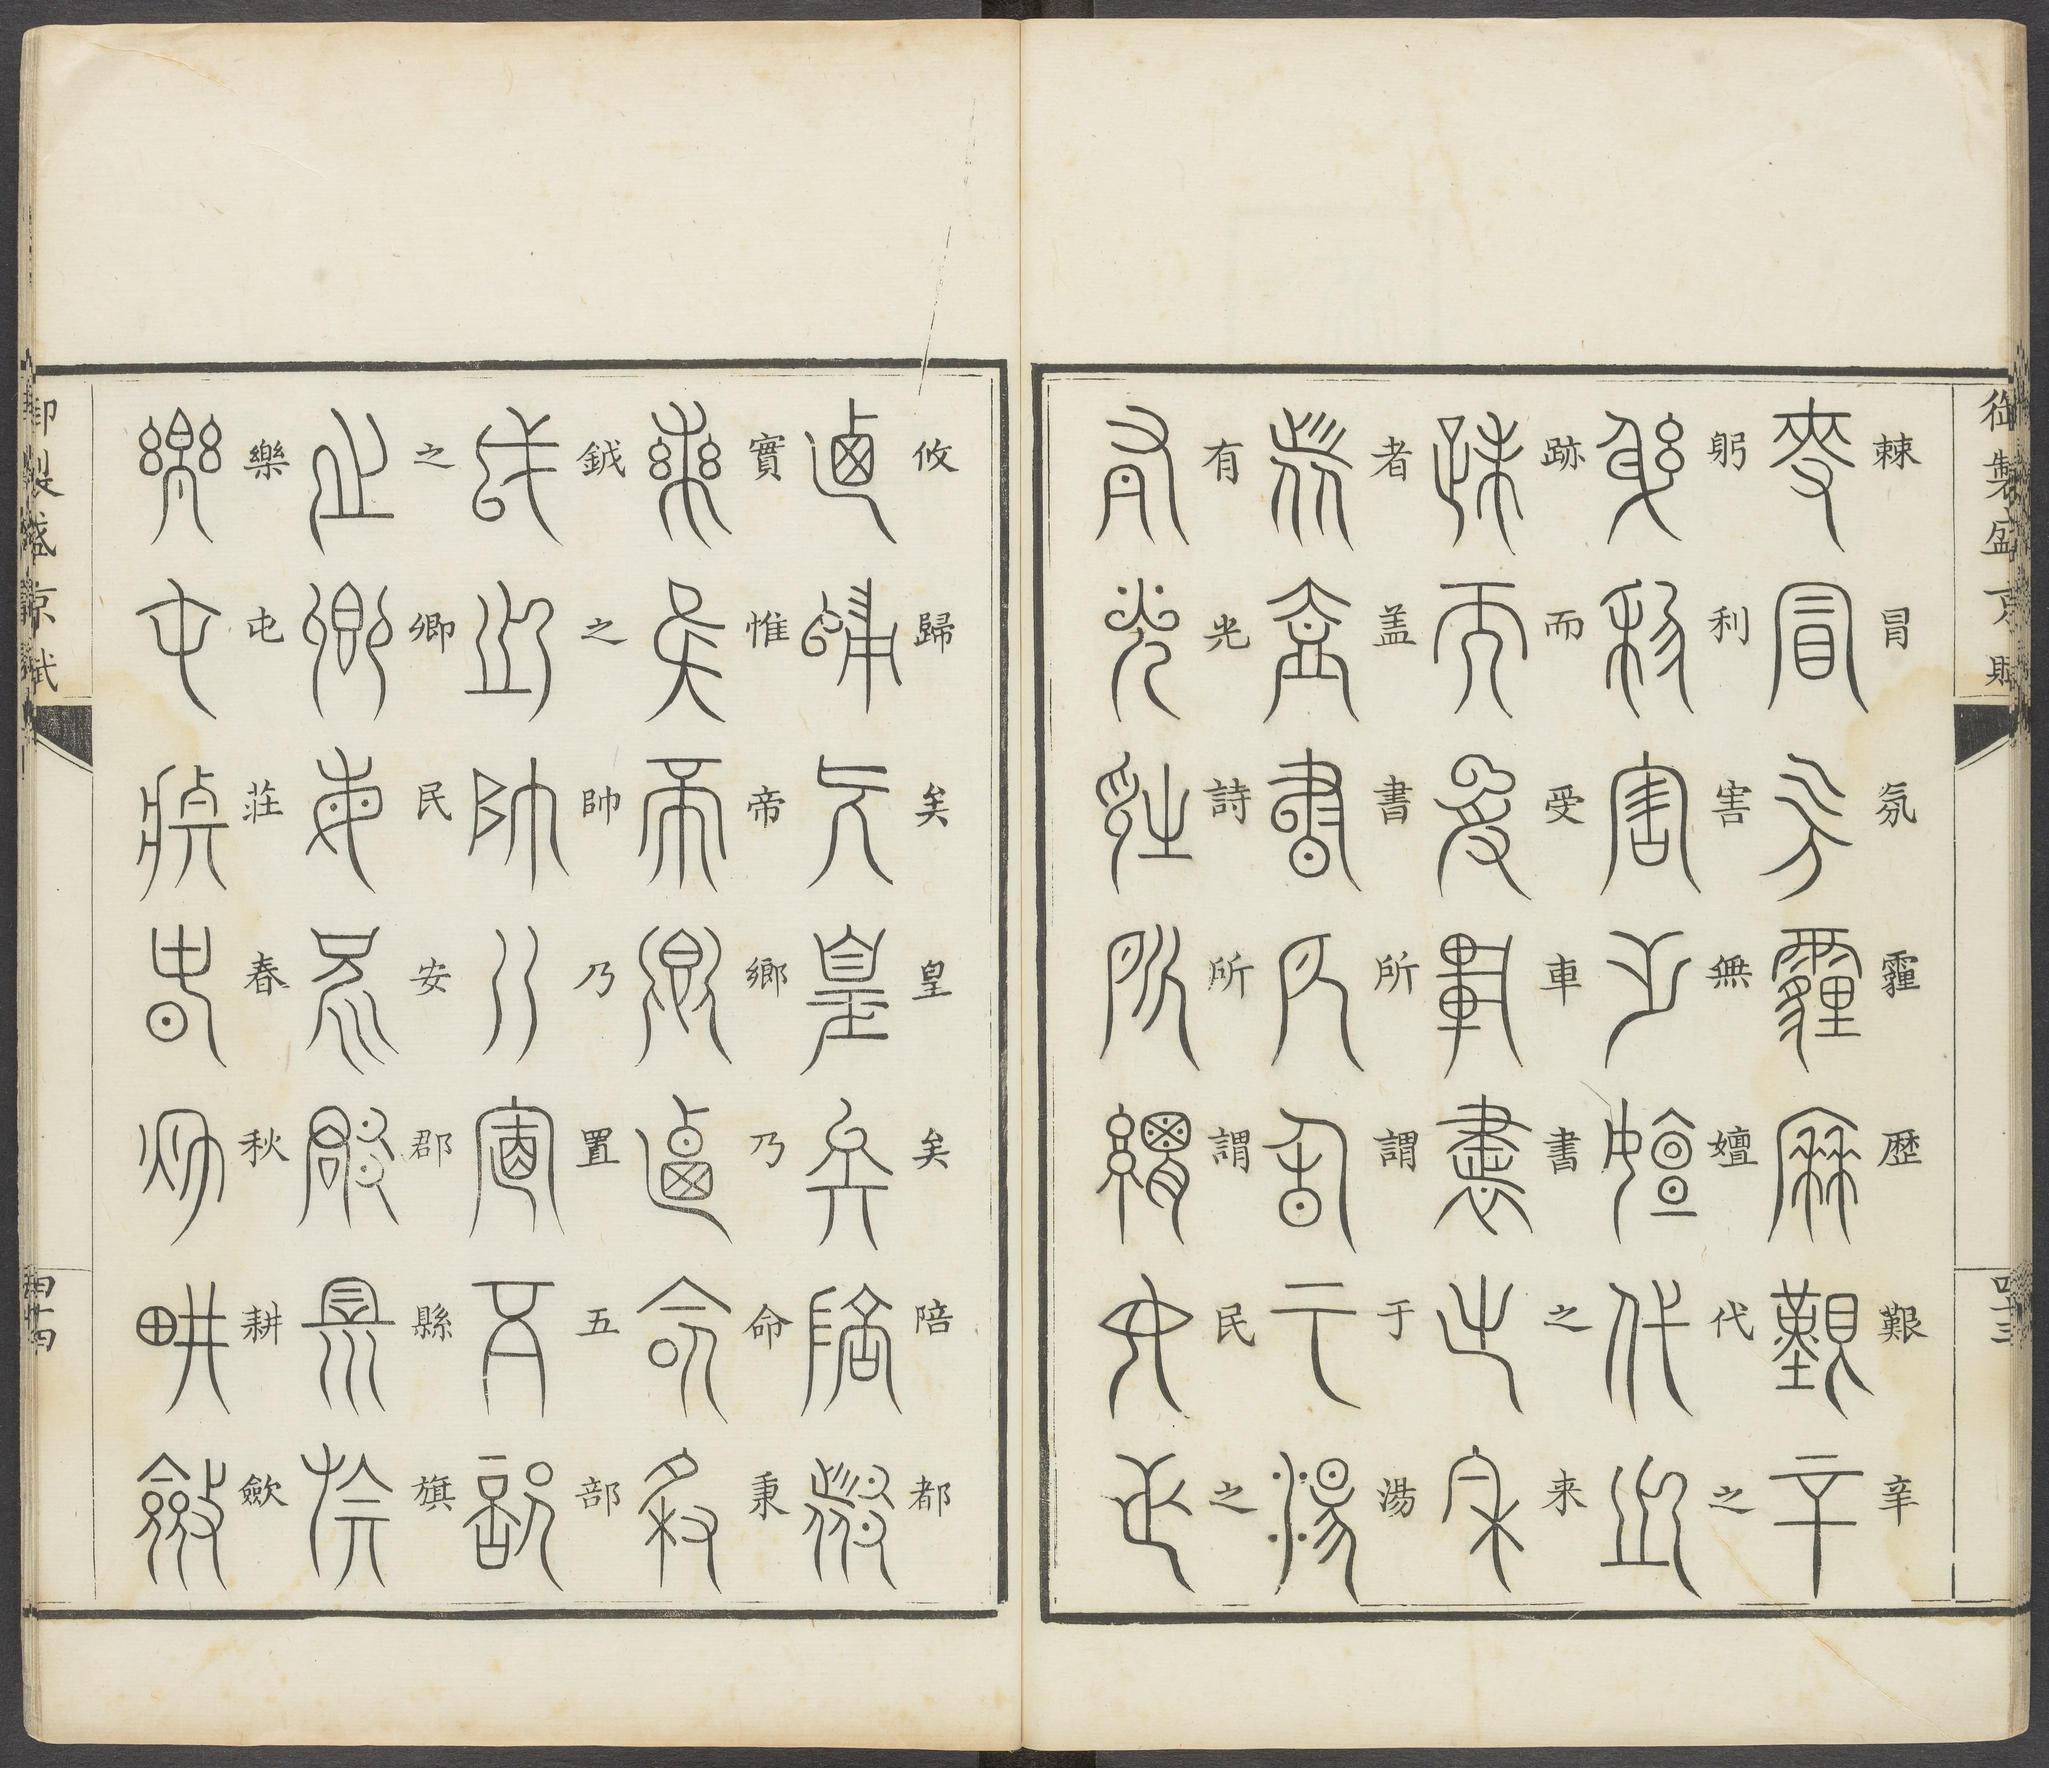 御製盛京賦
四十三
棘冒氛霾歴艱辛
躬利害無嬗代之
跡而受車書之来
者盖書所謂于湯
有光詩所謂民之
攸歸矣皇矣陪都
實惟帝鄉乃命秉
鉞之帥乃置五部
之卿民安郡縣旗
樂屯莊春秋耕斂
御製盛京賦
四十四